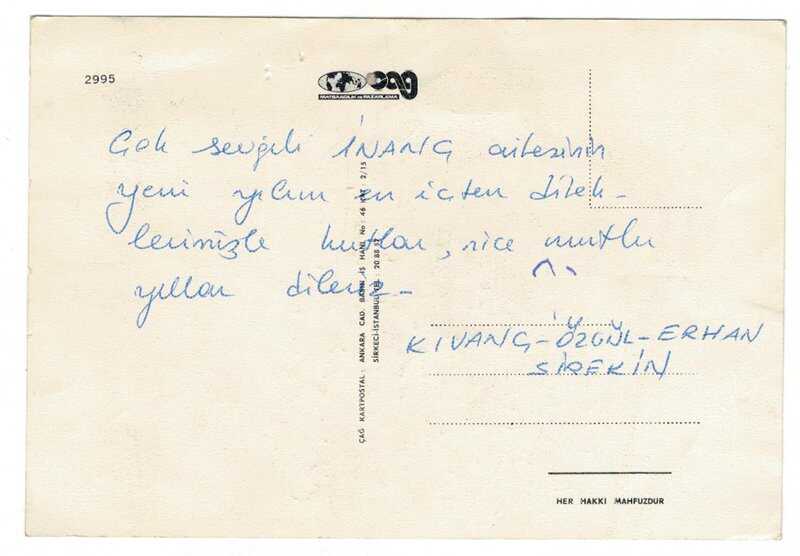 2995
çağ
MATBAACILIK ve PAZARLAMA
Çok sevgili İNANÇ ailesinin
yeni yılını en içten dilek-
lerimizle kutlar, nice mutlu
yıllar dileriz-
KIVANÇ-ÖZGÜL-ERHAN
SİREKİN
ÇAĞ KARTPOSTAL: ANKARA CAD. BASIN İŞ HANI. No: 46 KAT 2/15
SİRKECİ-İSTANBUL TEL: 20 88 57
HER HAKKI MAHFUZDUR